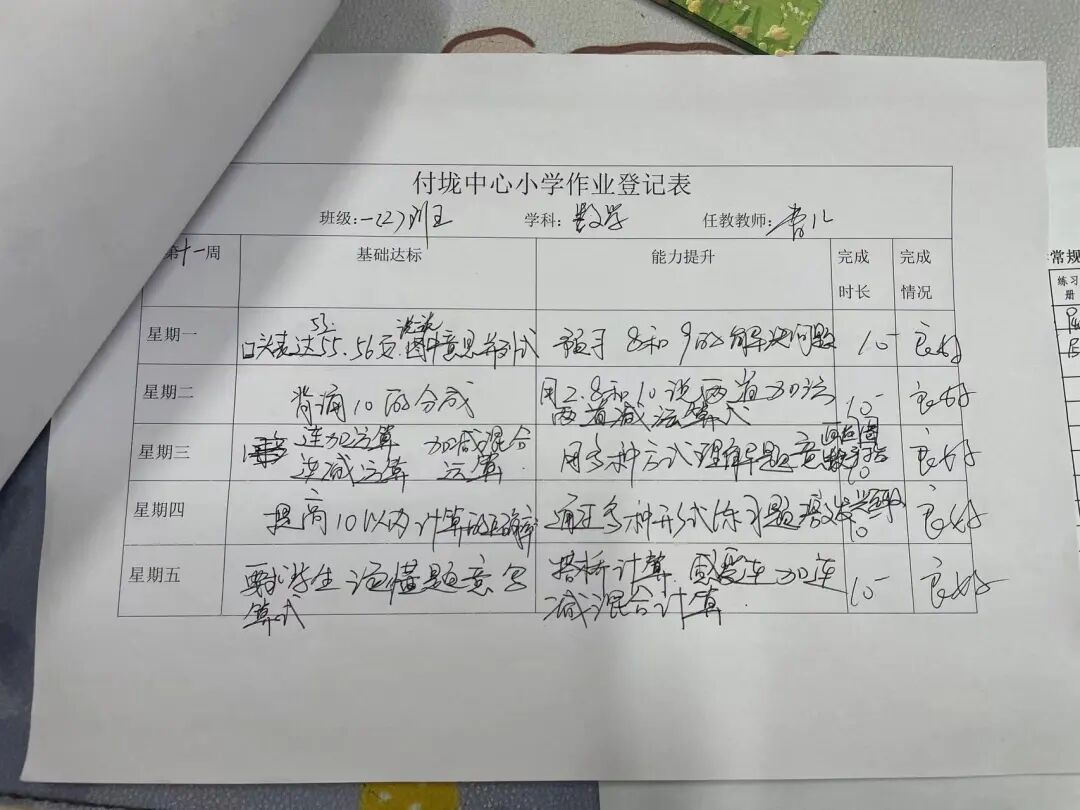 付垅中心小学作业登记表
班级：一(2)班 学科：数学 任教教师：
第十一周 基础达标 能力提升 完成时长 完成情况
星期一 口头表达53.55.56页.说说图中意思并列式 预习8和9的解决问题 10 良好
星期二 背诵10的分成 用2.8和10说两道加法两道减法算式 10 良好
星期三 连加运算 加减混合 连减运算 运算 用多种方式理解题意 10 良好
星期四 提高10以内计算的正确率 通过多种形式练习题 10 良好
星期五 要求学生读懂题意写算式 搭桥计算.连加连减混合计算. 10 良好
常规
练习册